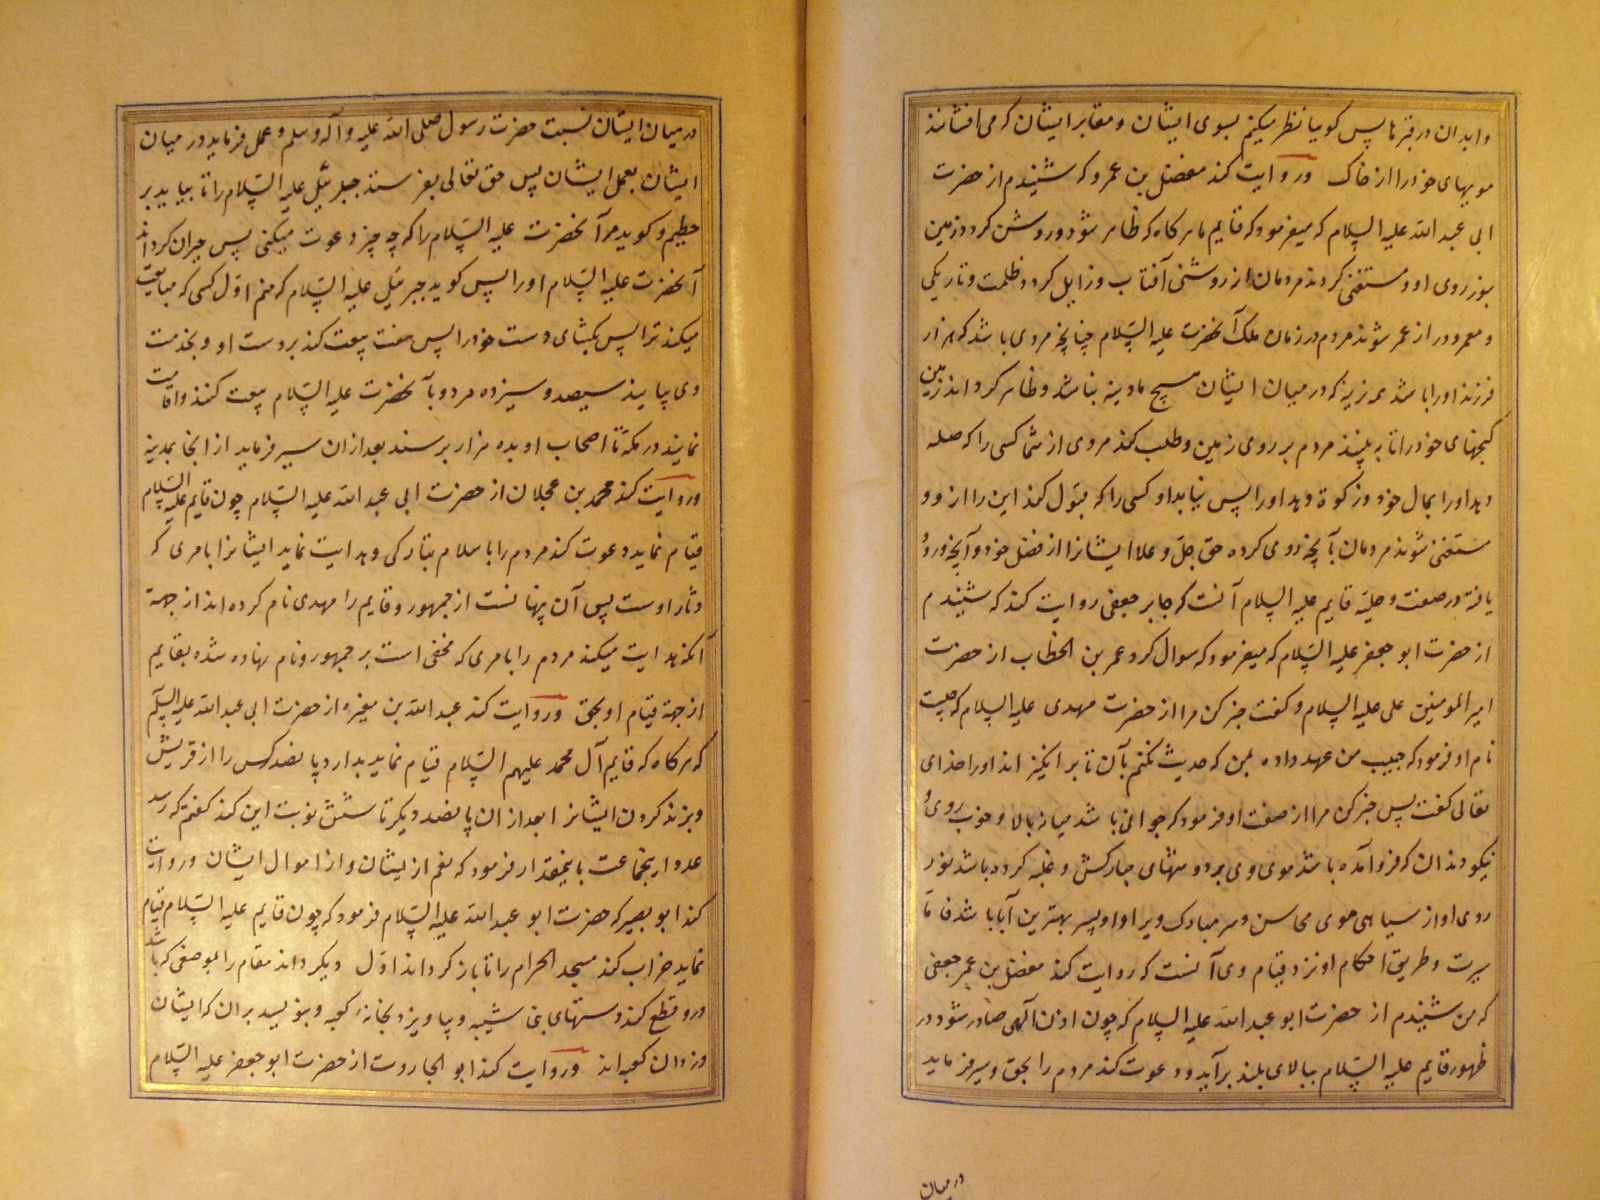 وابدان در قبرها پس گویا نظر میکنم بسوی ایشان و مقابر ایشان که می افشانند
مویهای خود را از خاک و روایت کند مفضل بن عمرو که شنیدم از حضرت
ابی عبد الله علیه السلام که میفرمود که قایم ما هرگاه که ظاهر شود و روشن گردد زمین
بنور روی او و مستغنی گردند مردمان از روشنی آفتاب و زایل گردد ظلمت و تاریکی
و معمر و دراز عمر شوند مردم در زمان ملک آنحضرت علیه السلام چنانچه مردی باشد که هزار
فرزند او را باشد همه نرینه که در میان ایشان هیچ مادینه نباشد و ظاهر گرداند زمین
گنجهای خود را تا به بینند مردم بر روی زمین و طلب کند مردی از شما کسی را که صله
دهد او را بمال خود و زکوة دهد او را پس نیابد او کسی را که قبول کند این را از وو
مستغنی شوند مردمان بآنچه روزی کرده حق جل و علا ایشانرا از فضل خود و آنچه ورود
یافته در صفت و حلیه قایم علیه السلام آنست که جابر جعفی روایت کند که شنیدم
از حضرت ابو جعفر علیه السلام که میفرمود که سوال کرد عمر بن الخطاب از حضرت
امیر المومنین علی علیه السلام و گفت خبر کن مرا از حضرت مهدی علیه السلام که چیست
نام او فرمود که حبیب من عهد داده بمن که حدیث نکنم بآن تا برانگیزاند او را خدای
تعالی گفت پس خبر کن مرا از صفت او فرمود که جوانی باشد میانه بالا و خوب روی و
نیکو که فرو آمده باشد موی وی بر دوشهای مبارکش و غلبه کرده باشد نور
روی او از سیاهی موی محاسن و سر مبارک ویرا او پسر بهترین باشد فاما
سیرت و طریق احکام او نزد قیام وی آنست که روایت کند مفضل بن عمر جعفی
که من شنیدم از حضرت ابو عبد الله علیه السلام که چون اذن الهی صادر شود در
ظهور قایم علیه السلام ببالای بلند برآید و دعوت کند مردم را بحق و سیر فرماید
در میان
در میان ایشان نسبت حضرت رسول صلی الله علیه و آله وسلم و عمل فرماید در میان
ایشان بعمل ایشان پس حق تعالی بفرستد جبرئیل علیه السلام را تا بیاید بر
حطیم و گوید مر آنحضرت علیه السلام را که چه چیز دعوت میکنی پس خبران گرداند
آنحضرت علیه السلام او را پس گوید جبرئیل علیه السلام که منم اول کسی که مبایعت
میکند ترا پس بگشای دست خود را پس بیعت کند بر دست او و بخدمت
وی بیایند سیصد و سیزده مرد و بآنحضرت علیه السلام بیعت کنند و اقامت
نمایند در مکه تا اصحاب او بده هزار برسند بعد از ان سیر فرماید از انجا بمدینه
و روایت کند محمد بن عجلان از حضرت ابی عبد الله علیه السلام چون قایم علیه السلام
قیام نماید دعوت کند مردم را باسلام بتازگی و هدایت نماید ایشانرا بامری که
دثار اوست پس آن پنهانست از جمهور و قایم را مهدی نام کرده اند از جهة
آنکه هدایت میکند مردم را بامری که مخفی است بر جمهور و نام نهاده شده بقایم
از جهة قیام او بحق و روایت کند عبد الله بن مغیره از حضرت ابی عبد الله علیه السلام
که هرگاه که قایم آل محمد علیهم السلام قیام نماید بدارد پانصد کس را از قریش
و بزند گردن ایشانرا بعد از ان پانصد دیگر تا شش نوبت این کند گفتم که رسد
عدد اینجماعت باینمقدار فرمود که نعم از ایشان و از اموال ایشان و روایت
کند ابو بصیر که حضرت ابو عبد الله علیه السلام فرمود که چون قایم علیه السلام قیام
نماید خراب کند مسجد الحرام را تا باز گرداند اول و بگرداند مقام را بموضعی که باشد
درو قطع کند دستهای بنی شیبه و بیاویزد بخانه کعبه و بنویسد بران که ایشان
دزدان کعبه اند و روایت کند ابو الجارود از حضرت ابو جعفر علیه السلام